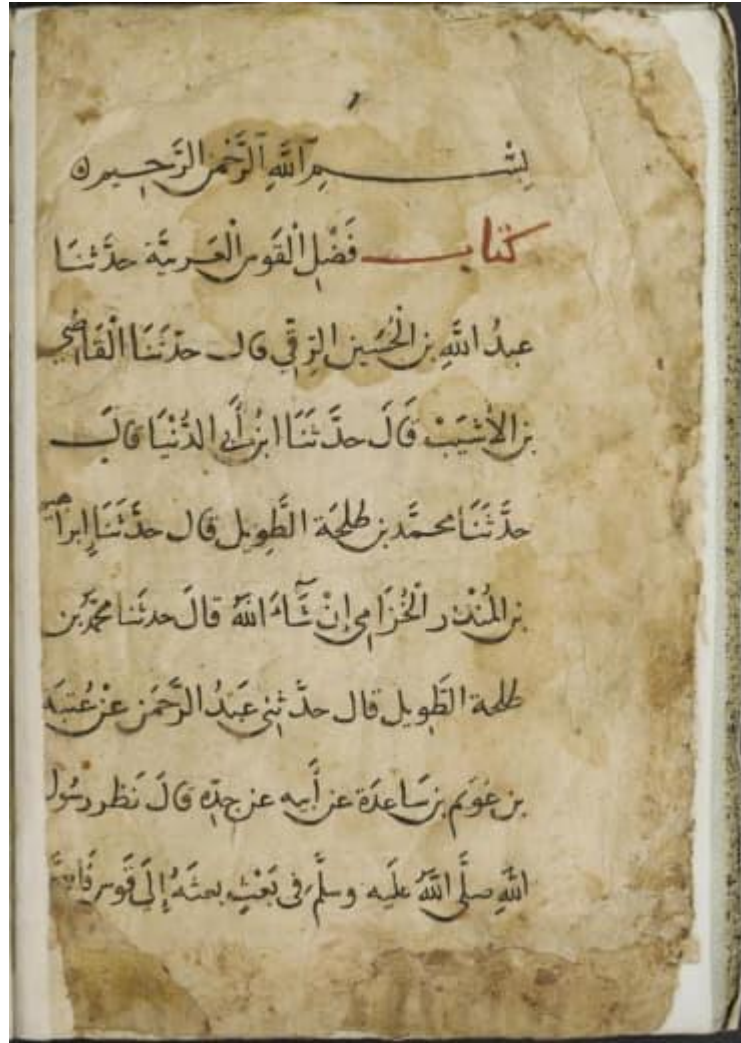 بِسْمِ اللَّهِ الرَّحْمَنِ الرَّحِيمِ
كتاب فَضْلِ الْقَوْسِ الْعَرَبِيَّة حدَّثنَا
عبدُ اللَّهِ بن الْحُسَين الرقي قال حدّثَنَا الْقَاضِي
بن الأشيَبْ قَالَ حدَّثَنَا ابنُ أَبِي الدُّنْيَا قالَ
حدَّثَنَا محمَّد بن طلحَة الطَّوِيل قال حدَّثَنَا إبراهيم
بن المُنْذر الْخُزَامِي إنْ شَآءَ اللَّهُ قالَ حدثَنا محمَّد بن
طلحة الطَّوِيل قال حدَّثنِي عَبْدُ الرَّحمَن عَنْ عُتبَة
بن عُوَيم بن سَاعدَة عن أَبِيه عن جدِّه قالَ نَظر رسُول
اللَّهِ صلَّى اللَّهُ علَيه وسلَّم فِي بَعْثٍ بعثَهُ إِلَى قَوسٍ